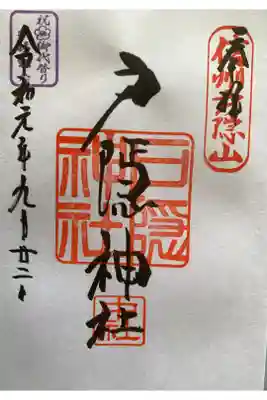 奉拝
信州戸隠山
戸隠神社
戸隠神社
祝 御代替り
令和元年九月廿二日